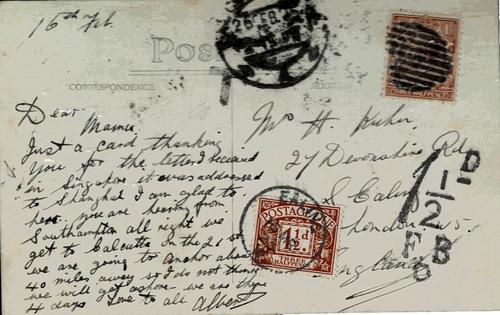 16th Feb.
Post
CORRESPONDENCE
26 FB
T
Dear
Mama
Just a card thanking
you for the letter I received
in Singapore it was addressed
to Shanghai I am glad to
hear you are hearing from
Southampton all right we
get to Calcutta on the 21 st
we are going to anchor about
40 miles away so I do not think
we will get ashore we are there
4 days Love to all Albert
Mrs H.
27 Devonshire Rd
S Ealing
London W5.
England
POSTAGE DUE
1½d
THREE
HALFPENCE
1½D
F B